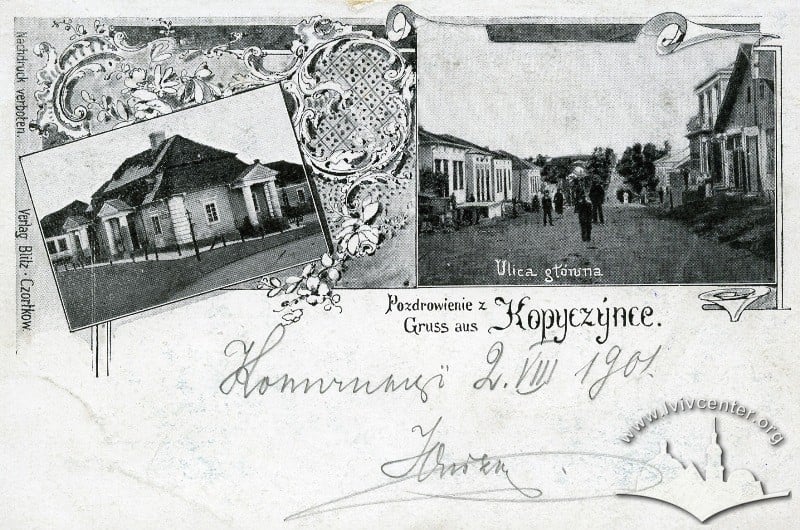 Nachdruck verboten.
Verlag Bütz-Czortkow
Ulica główna
Pozdrowienie z
Gruss aus Kopyczýnce.
2. VIII 1901.
www.lvivcenter.org